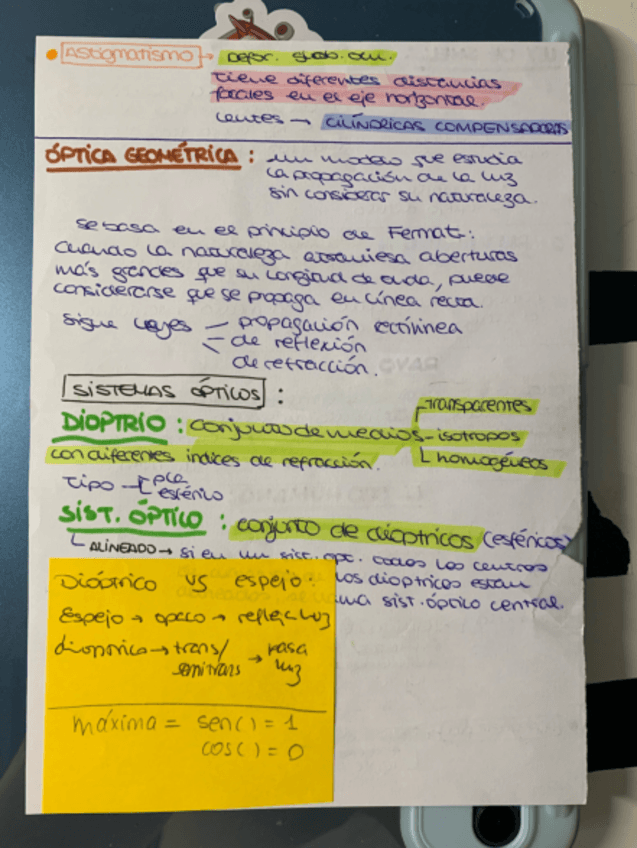 ASTIGMATISMO → Defor. glob. ocu.
tiene diferentes distancias
focales en el eje horizontal.
Lentes → CILÍNDRICAS COMPENSADORAS
ÓPTICA GEOMÉTRICA : un modelo que estudia
la propagación de la luz
sin considerar su naturaleza.
Se basa en el principio de Fermat:
cuando la naturaleza atraviesa aberturas
más grandes que su longitud de onda, puede
considerarse que se propaga en línea recta.
Sigue leyes – propagación rectilínea
– de reflexión
de refracción.
SISTEMAS ÓPTICOS :
DIOPTRIO : conjunto de medios - transparentes
- isotropos
con diferentes indices de refracción. homogéneos
Tipo
esférico
SIST. ÓPTICO : conjunto de dióptricos (esféricos)
ALINEADO → si en un sist. opt. todos los centros
los dioptricos estan
una sist. óptico central.
Dióptrico vs espejo.
Espejo → opaco → refleja luz
dioptrico → trans/ → pasa
semitrans luz
máxima = sen() = 1
cos() = 0